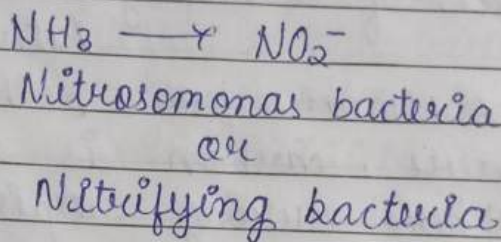 NH3 → NO2⁻
Nitrosomonas bacteria
or
Nitrifying bacteria